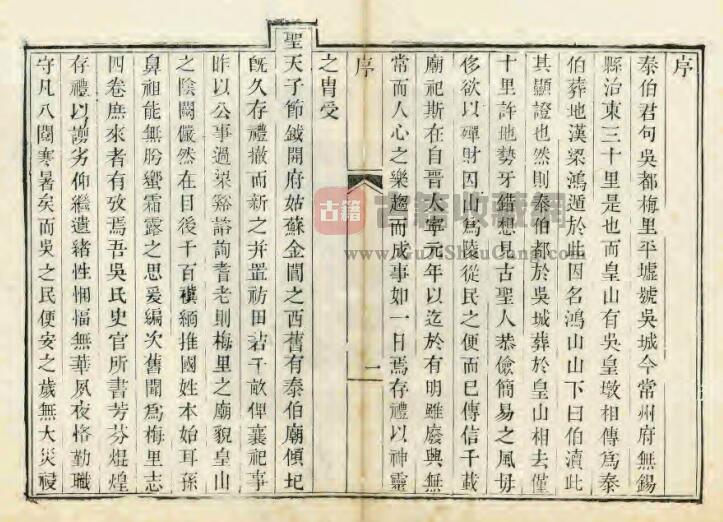 序
泰伯君句吳都梅里平墟號吳城今常州府無錫
縣治東三十里是也而皇山有吳皇墩相傳爲泰
伯葬地漢梁鴻遁於此因名鴻山山下曰伯瀆此
其顯證也然則泰伯都於吳城葬於皇山相去僅
十里許地勢牙錯想見古聖人恭儉簡易之風毋
侈欲以殫財因山爲陵從民之便而已傳信千載
廟祀斯在自晉大寧元年以迄於有明雖廢興無
常而人心之樂趨而成事如一日焉存禮以神靈
序
一
之胄受
聖天子節鉞開府姑蘇金閶之西舊有泰伯廟傾圮
旣久存禮撤而新之并置祊田若干畝俾襄祀事
昨以公事過梁谿諮詢耆老則梅里之廟貌皇山
之陰闕儼然在目後千百禩緬推國姓本始耳孫
鼻祖能無肹蠁霜露之思爰編次舊聞爲梅里志
四卷庶來者有攷焉吾吳氏史官所書芳芬焜煌
存禮以謭劣仰繼遺緒性悃愊無華夙夜恪勤職
守凡八閱寒暑矣而吳之民便安之歲無大災祲
古籍
www.GuJiShouCang.com